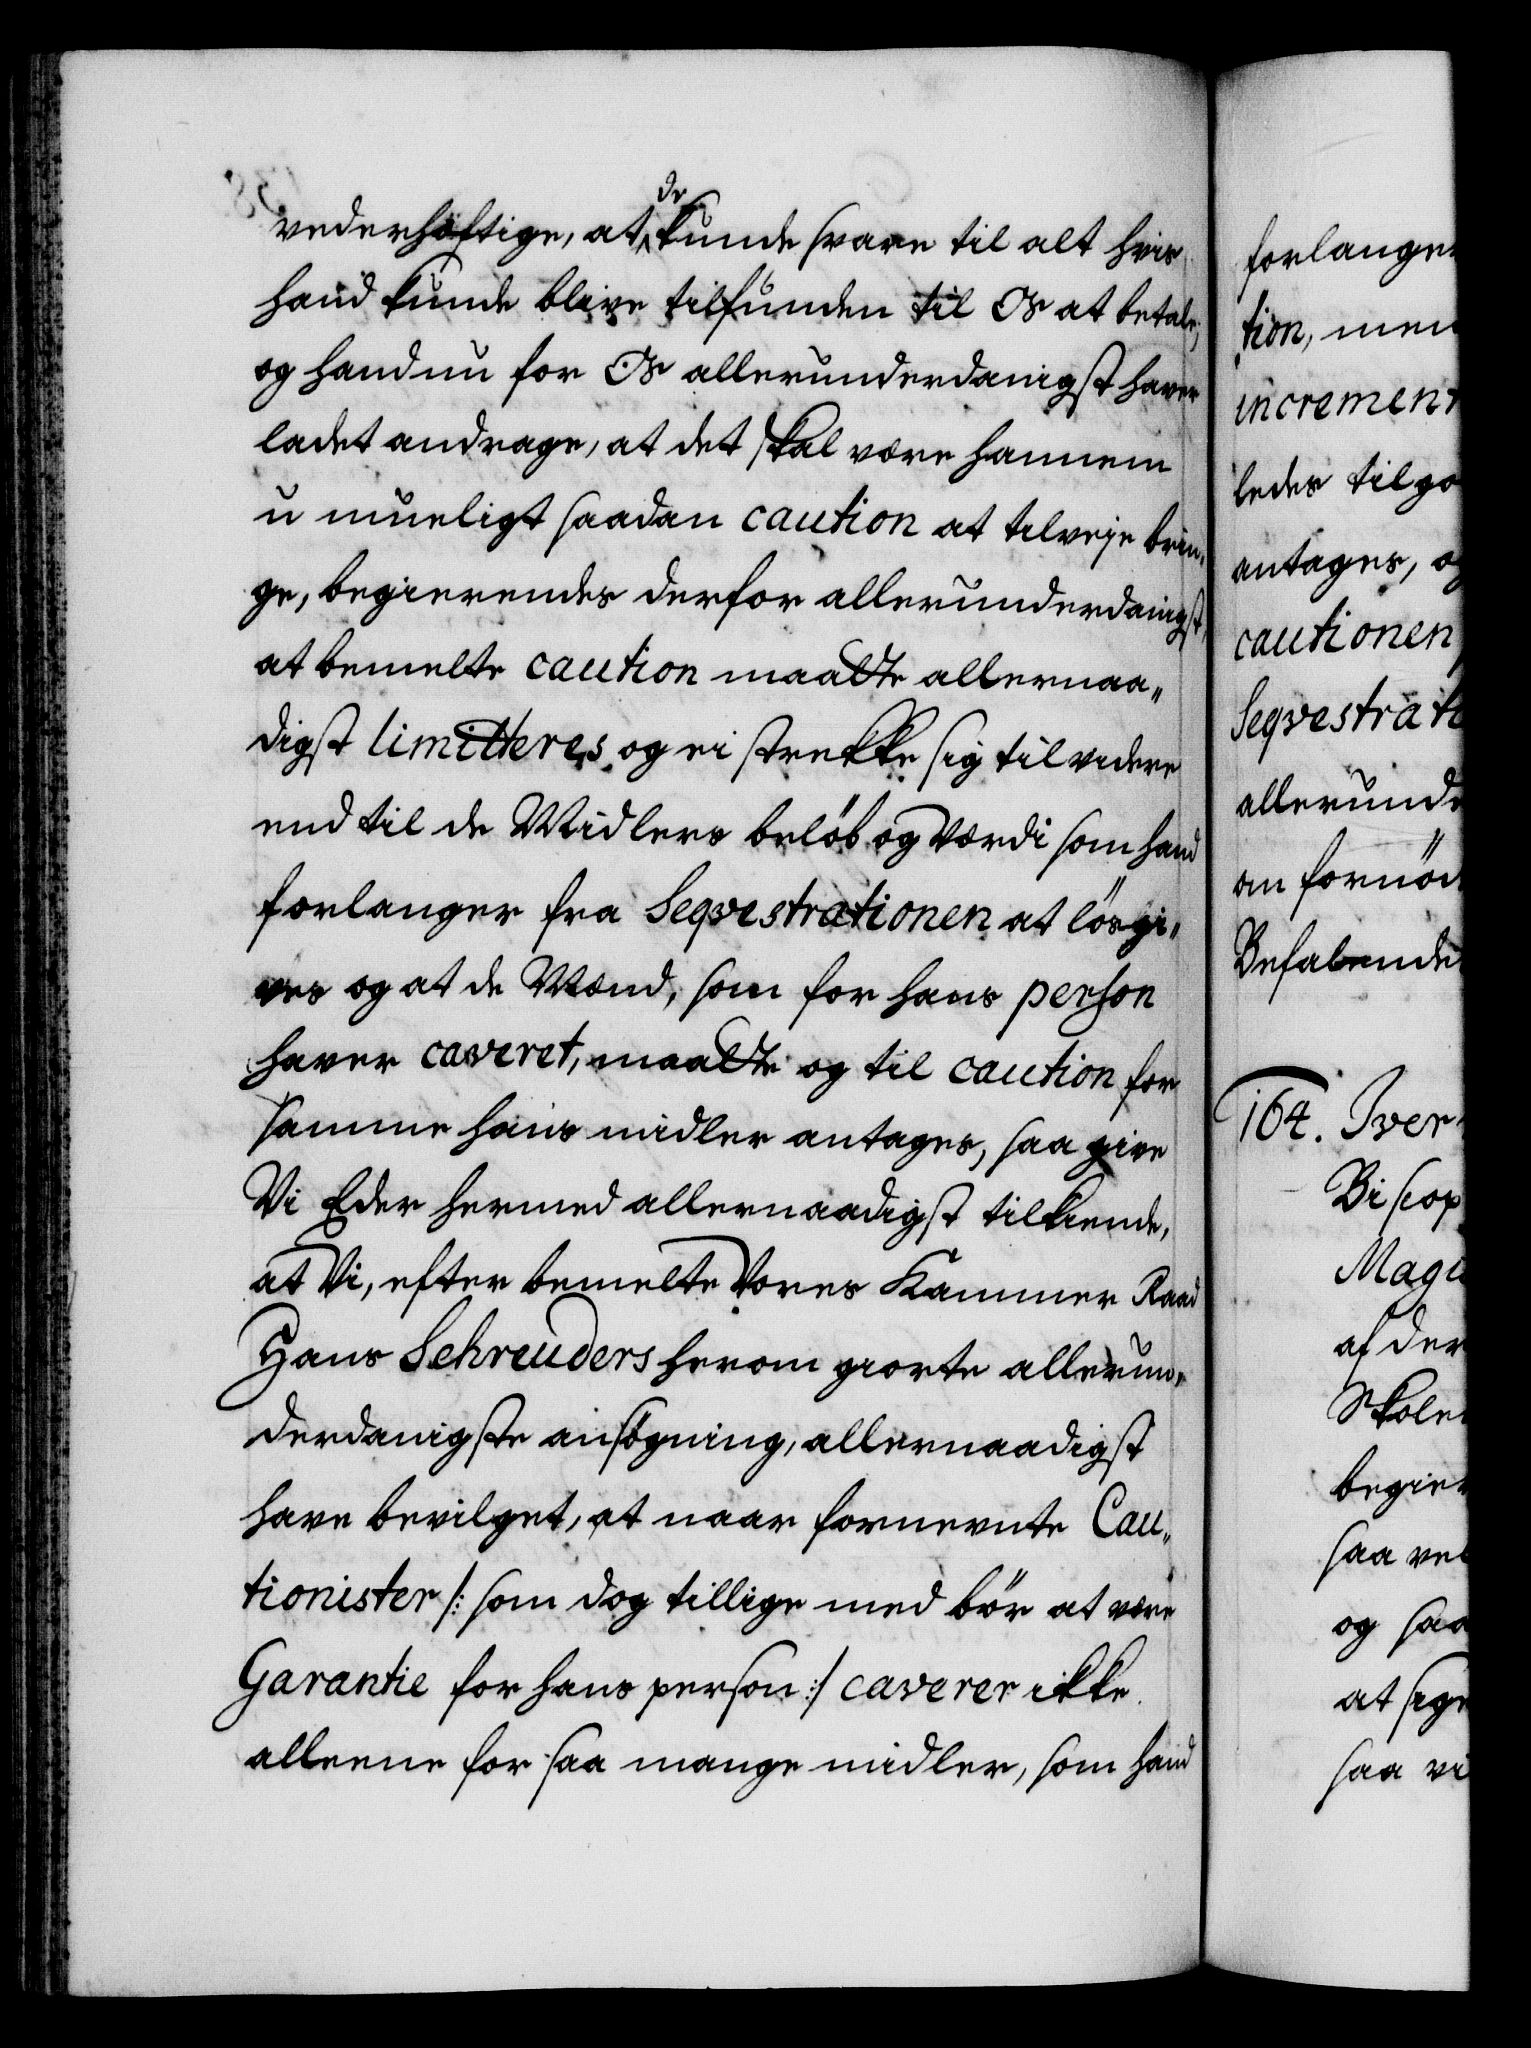 vederhæftige, at de kunde svare til alt hvis
hand kunde blive tilfunden til Os at betale,
og hand nu for Os allerunderdanigst haver
ladet andrage, at det skal være hannem
u mueligt saadan caution at tilveje brin-
ge, begierendes derfor allerunderdanigst,
at bemelte caution maatte allernaa-
digst limitteres og ei strekke sig til videre
end til de Midlers beløb og Værdi som hand
forlanger fra Seqvestrationen at løsgi-
ves og at de Mænd, som for hans person
haver caveret, maatte og til caution for
samme hans midler antages, saa give
Vi Eder hermed allernaadigst tilkiende,
at Vi, efter bemelte Vores Kammer Raad
Hans Schreuders herom giorte allerun-
derdanigste ansøgning, allernaadigst
have bevilget, at naar fornevnte Cau-
tionister /: som dog tillige med bør at være
Garantie for hans person :/ caverer ikke
alleene for saa mange midler, som hand
forlanger
tion, men
increment
ledes tilgo
antages, og
cautionen
Seqvestratio
allerunde
om fornød
Befalende
164. Iver
Biscop
Magi
af der
Skole
begier
saa vel
og saa
at sige
saa vi